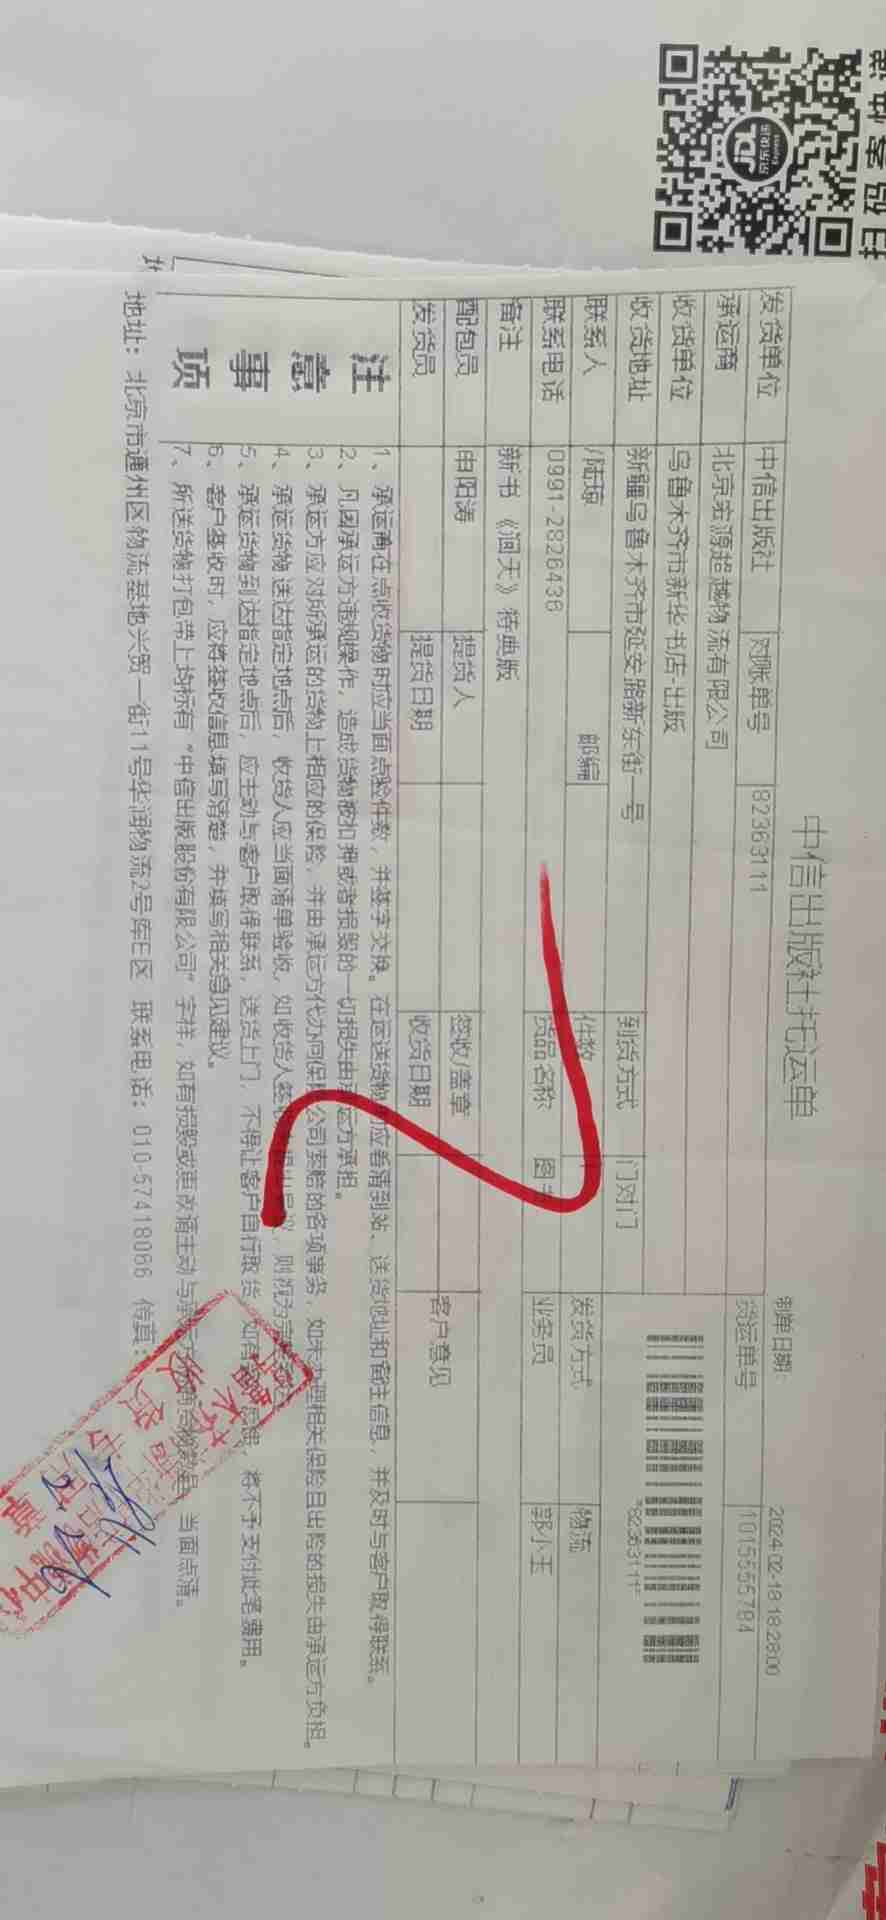 扫码寄快递
JDL
京东快递
Express
中信出版社托运单
制单日期: 2024-02-18 18:28:00
发货单位 中信出版社 对账单号 82363111 货运单号 1015555784
承运商 北京宏源超越物流有限公司
收货单位 乌鲁木齐市新华书店-出版 *82363111*
收货地址 新疆乌鲁木齐市延安路新东街一号 到货方式 门对门
联系人 /陆琼 邮编 件数 发货方式 物流
联系电话 0991-2826438 货品名称 图书 业务员 郭小玉
备注 新书《洞天》特典版
配包员 申阳涛 提货人 签收/盖章 客户意见
发货员 提货日期 收货日期
注意事项
1、承运商在点收货物时应当面点验件数,并签字交换。在运送货物时应看清到站、送货地址和备注信息,并及时与客户取得联系。
2、凡因承运方违规操作,造成货物被扣押或者损毁的一切损失由承运方承担。
3、承运方应对所承运的货物上相应的保险,并由承运方代办向保险公司索赔的各项事务,如未办理相关保险且出险的损失由承运方负担。
4、承运货物送达指定地点后,收货人应当面清单验收,如收货人签收 则视为完
5、承运货物到达指定地点后,应主动与客户取得联系,送货上门,不得让客户自行取货 如有 将不予支付此笔费用。
6、客户签收时,应将签收信息填写清楚,并填写相关意见建议。
7、所送货物打包带上均标有“中信出版股份有限公司”字样,如有损毁或更改请主动与承运方 当面点清。
地址: 北京市通州区物流基地兴贸一街11号华润物流2号库E区 联系电话: 010-57418066 传真:
收货专用章